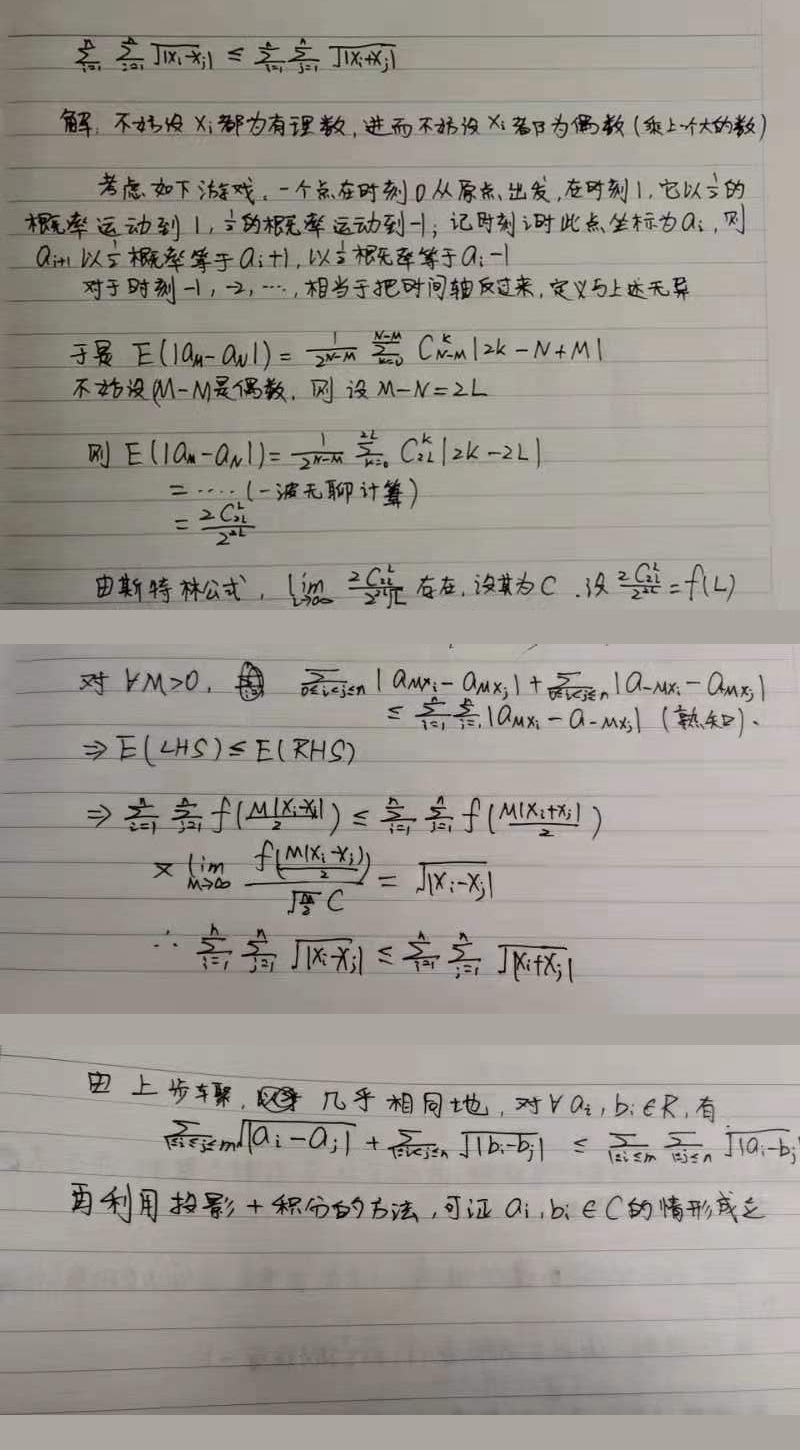 $\sum_{i=1}^{n} \sum_{j=1}^{n} \sqrt{|x_i - x_j|} \leq \sum_{i=1}^{n} \sum_{j=1}^{n} \sqrt{|x_i + x_j|}$
解: 不妨设 $x_i$ 都为有理数, 进而不妨设 $x_i$ 都为偶数 (乘上个大的数)
考虑如下游戏。一个点在时刻0从原点出发, 在时刻1, 它以 $\frac{1}{2}$ 的
概率运动到1, $\frac{1}{2}$ 的概率运动到-1; 记时刻i时此点坐标为 $a_i$, 则
$a_{i+1}$ 以 $\frac{1}{2}$ 概率等于 $a_i+1$, 以 $\frac{1}{2}$ 概率等于 $a_i-1$
对于时刻-1, -2, …, 相当于把时间轴反过来, 定义与上述无异
于是 $E(|a_M - a_N|) = \frac{1}{2^{N-M}} \sum_{k=0}^{N-M} C_{N-M}^{k} |2k - N + M|$
不妨设(M-N)是偶数, 则设 M-N=2L
则 $E(|a_M - a_N|) = \frac{1}{2^{N-M}} \sum_{k=0}^{2L} C_{2L}^{k} |2k - 2L|$
= ···· (一波无聊计算)
$= \frac{2C_{2L}^{L}}{2^{2L}}$
由斯特林公式, $\lim_{L\to\infty} \frac{2C_{2L}^{L}}{2^{2L}\sqrt{L}}$ 存在, 设其为C. 设 $\frac{2C_{2L}^{L}}{2^{2L}} = f(L)$
对 $\forall M>0$, $\sum_{0\leq i<j\leq n} |a_{Mx_i} - a_{Mx_j}| + \sum_{0\leq i<j\leq n} |a_{-Mx_i} - a_{Mx_j}|$
$\leq \sum_{i=1}^{n} \sum_{j=1}^{n} |a_{Mx_i} - a_{-Mx_j}|$ (熟知).
$\Rightarrow E(LHS) \leq E(RHS)$
$\Rightarrow \sum_{i=1}^{n} \sum_{j=1}^{n} f(\frac{M|x_i-x_j|}{2}) \leq \sum_{i=1}^{n} \sum_{j=1}^{n} f(\frac{M|x_i+x_j|}{2})$
又 $\lim_{M\to\infty} \frac{f(\frac{M|x_i-x_j|}{2})}{\sqrt{\frac{M}{2}} C} = \sqrt{|x_i-x_j|}$
$\therefore \sum_{i=1}^{n} \sum_{j=1}^{n} \sqrt{|x_i-x_j|} \leq \sum_{i=1}^{n} \sum_{j=1}^{n} \sqrt{|x_i+x_j|}$
由上步骤, 几乎相同地, 对 $\forall a_i, b_i \in R$, 有
$\sum_{1\leq i\leq j\leq m} \sqrt{|a_i-a_j|} + \sum_{1\leq i<j\leq n} \sqrt{|b_i-b_j|} \leq \sum_{1\leq i\leq m} \sum_{1\leq j\leq n} \sqrt{|a_i-b_j|}$
再利用投影+积分的方法, 可证 $a_i, b_i \in C$ 的情形成立